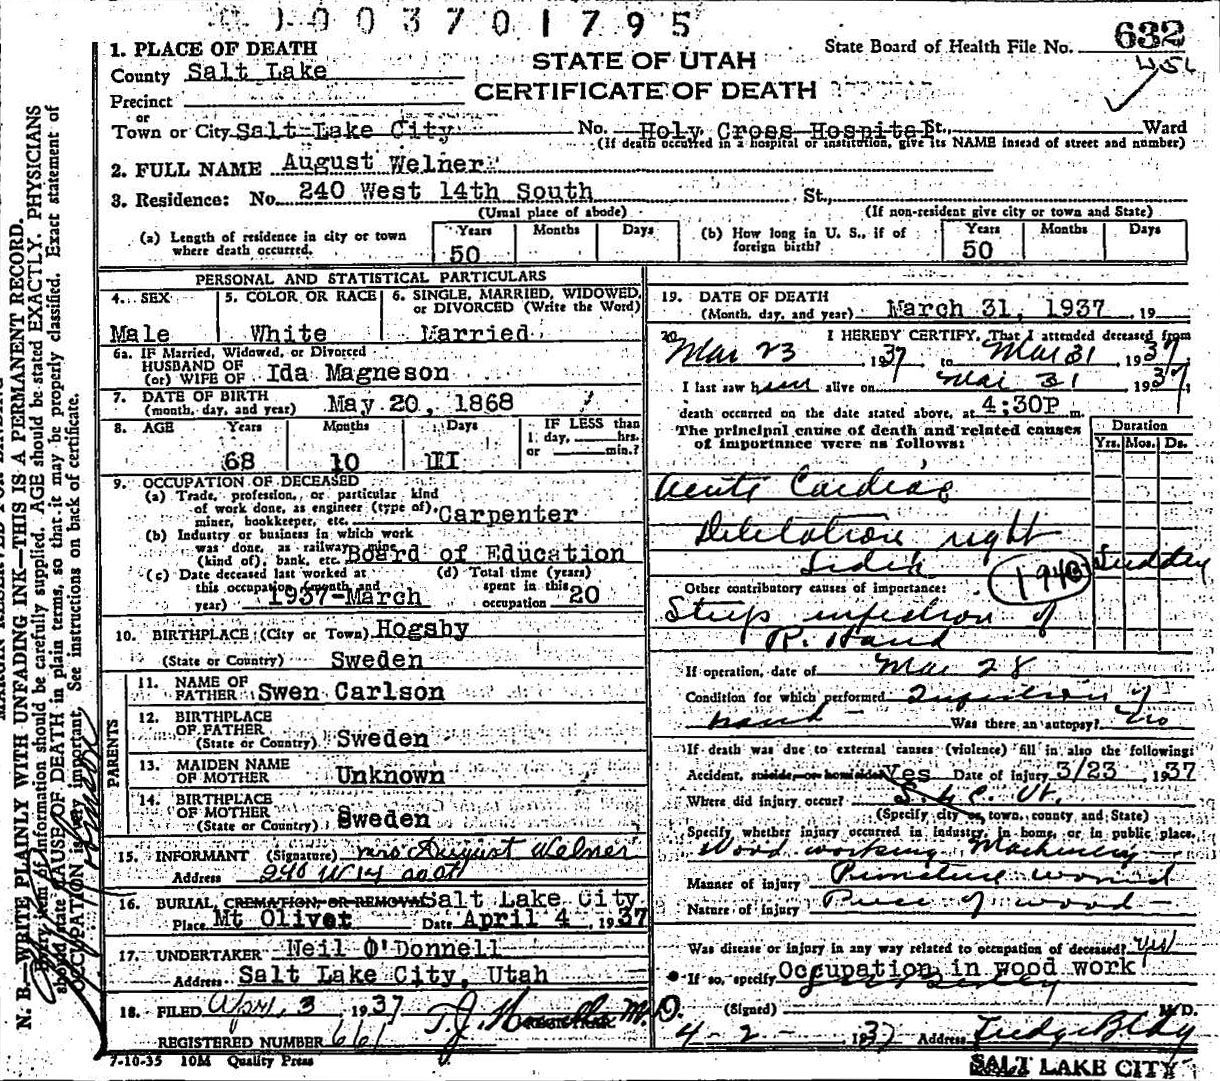 0003701795
1. PLACE OF DEATH
County Salt Lake
Precinct
or
Town or City Salt Lake City No. Holy Cross Hospital St., Ward
(If death occurred in a hospital or institution, give its NAME instead of street and number)
STATE OF UTAH
CERTIFICATE OF DEATH
State Board of Health File No. 632
2. FULL NAME August Welner
3. Residence: No. 240 West 14th South St.,
(Usual place of abode) (If non-resident give city or town and State)
(a) Length of residence in city or town where death occurred. Years 50 Months Days
(b) How long in U. S., if of foreign birth? Years 50 Months Days
PERSONAL AND STATISTICAL PARTICULARS
4. SEX Male
5. COLOR OR RACE White
6. SINGLE, MARRIED, WIDOWED, or DIVORCED (Write the Word) Married
6a. IF Married, Widowed, or Divorced
HUSBAND OF
(or) WIFE OF Ida Magneson
7. DATE OF BIRTH
(month, day, and year) May 20, 1868
8. AGE Years 68 Months 10 Days 11
IF LESS than
1 day, hrs.
or min.?
9. OCCUPATION OF DECEASED
(a) Trade, profession, or particular kind
of work done, as engineer (type of),
miner, bookkeeper, etc. Carpenter
(b) Industry or business in which work
was done, as railway, mine
(kind of), bank, etc. Board of Education
(c) Date deceased last worked at
this occupation (month and
year) 1937-March
(d) Total time (years)
spent in this
occupation 20
10. BIRTHPLACE (City or Town) Hogsby
(State or Country) Sweden
PARENTS
11. NAME OF
FATHER Swen Carlson
12. BIRTHPLACE
OF FATHER
(State or Country) Sweden
13. MAIDEN NAME
OF MOTHER Unknown
14. BIRTHPLACE
OF MOTHER
(State or Country) Sweden
15. INFORMANT (Signature) Mrs August Welner
Address 240 W 14 South
16. BURIAL, CREMATION, OR REMOVAL Salt Lake City
Place Mt Olivet Date April 4, 1937
17. UNDERTAKER Neil O'Donnell
Address Salt Lake City, Utah
18. FILED Apr. 3 1937
REGISTRAR
REGISTERED NUMBER 661
7-10-35 10M Quality Press
19. DATE OF DEATH
(Month, day, and year) March 31, 1937, 19
20. I HEREBY CERTIFY, That I attended deceased from
Mar 23 1937 to Mar 31, 1937
I last saw him alive on Mar 31, 1937,
death occurred on the date stated above, at 4:30P m.
The principal cause of death and related causes
of importance were as follows:
Duration
Yrs. Mos. Ds.
Acute Cardiac
Dilatation right
Side Sudden
Other contributory causes of importance:
Strep infection of
R. Hand
If operation, date of Mar 28
Condition for which performed Infection of
hand Was there an autopsy? No
If death was due to external causes (violence) fill in also the following:
Accident, suicide, or homicide Yes Date of injury 3/23, 1937
Where did injury occur? S.L.C. Ut.
(Specify city or town, county and State)
Specify whether injury occurred in industry, in home, or in public place.
Wood working Machinery
Manner of injury Puncture wound
Nature of injury Piece of wood
Was disease or injury in any way related to occupation of deceased? Yes
If so, specify Occupation in wood work
(Signed) M. D.
4-2- 1937 Address Judge Bldg
SALT LAKE CITY
N. B.—WRITE PLAINLY WITH UNFADING INK—THIS IS A PERMANENT RECORD.
Every item of information should be carefully supplied. AGE should be stated EXACTLY. PHYSICIANS
should state CAUSE OF DEATH in plain terms, so that it may be properly classified. Exact statement of
OCCUPATION is very important. See instructions on back of certificate.